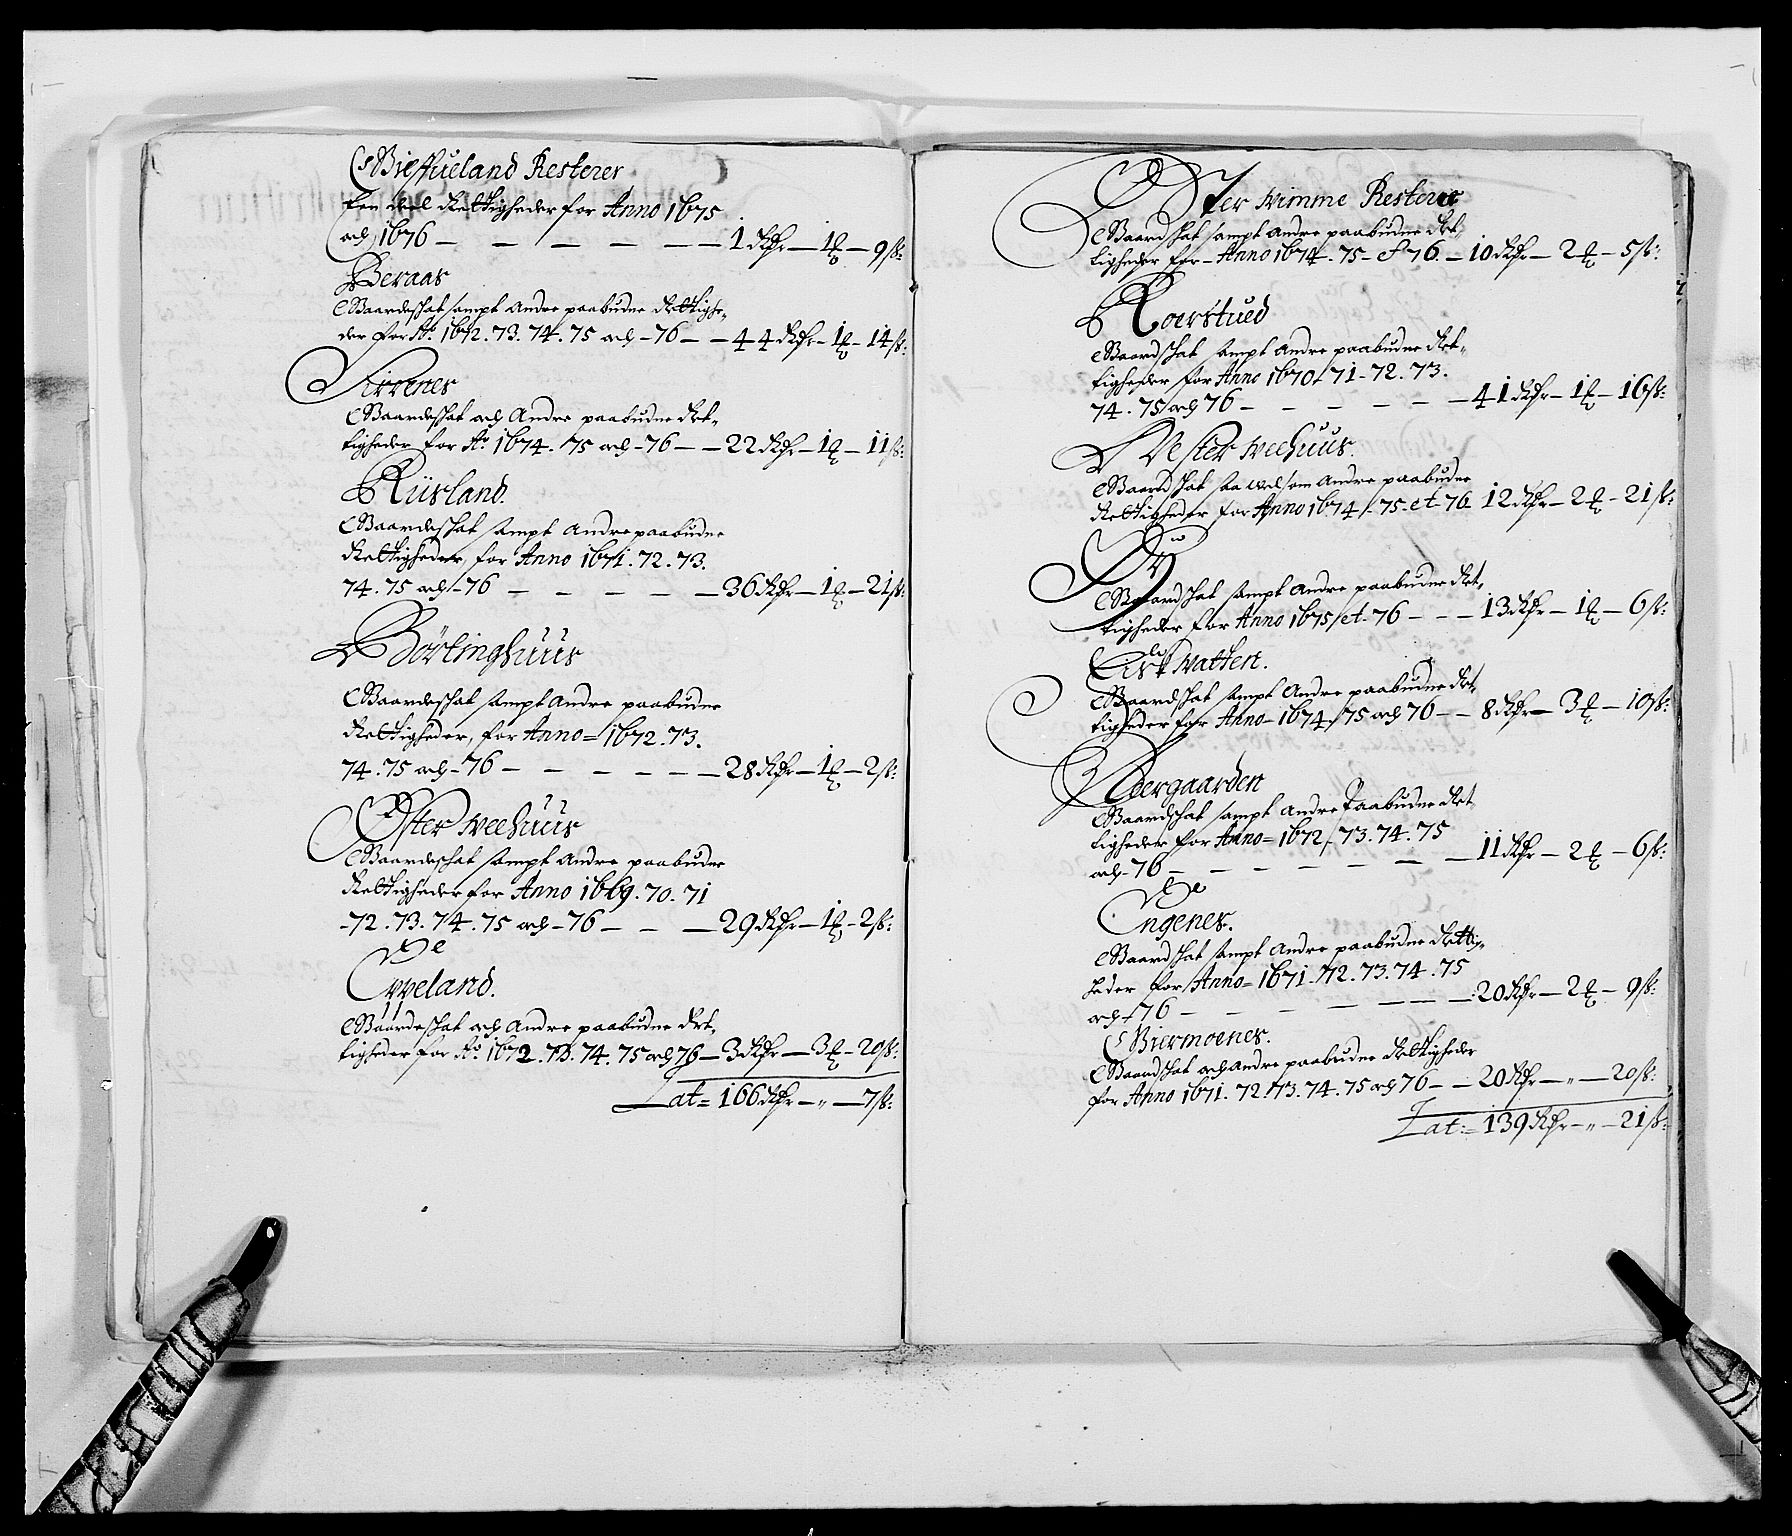 Gieffueland Resterer
Een deel Rettigheder for Anno 1675
och 1676 — — — — — 1 Rdr — 1 ℔ — 9 ß:
Beraas
Gaardeschat sampt Andre paabudne Rettighe-
der for Ao. 1672. 73. 74. 75 och - 76 — 44 Rdr - 1 ℔ - 14 ß:
Firrenes
Gaardeschat och Andre paabudne Ret-
tigheder for Ao. 1674. 75 och - 76 — 22 Rdr - 1 ℔ - 11 ß:
Riisland.
Gaardeschat sampt Andre paabudne
Rettigheder, for Anno 1671. 72. 73.
74. 75 och - 76 — — — — — 36 Rdr — 1 ℔ — 21 ß:
Börlinghuus
Gaardeschat sampt Andre paabudne
Rettigheder, for Anno = 1672. 73.
74. 75 och - 76 — — — — — 28 Rdr — 1 ℔ — 2 ß:
Öster weehuus
Gaardeschat sampt Andre paabudne
Rettigheder for Anno 1669. 70. 71
- 72. 73. 74. 75 och - 76 — — — 29 Rdr — 1 ℔ - 2 ß:
Eppeland.
Gaardeschat och Andre paabudne Ret-
tigheder for Ao. 1672. 73. 74. 75 och 76 — 3 Rdr — 3 ℔ - 20 ß:
Lat = 166 Rdr — „ — 7 ß:
Yter wimme Resterer
Gaardschat sampt Andre paabudne Ret-
tigheder for - Anno 1674. 75 - & 76 — 10 Rdr — 2 ℔ — 5 ß:
Roerstued
Gaardschat sampt Andre paabudne Ret-
tigheder for Anno 1670. 71 - 72. 73.
74. 75 och 76 — — — — — 41 Rdr — 1 ℔ — 16 ß:
Wester weehuus.
Gaardschat saa wel som Andre paabudne
Rettigheder for Anno 1674 / 75 - et - 76 - 12 Rdr — 2 ℔ - 21 ß:
Gaardschat sampt Andre paabudne Ret-
tigheder for Anno 1675 / et - 76 — — — 13 Rdr — 1 ℔ — 6 ß:
watten.
Gaardschat sampt Andre paabudne Ret-
tigheder for Anno - 1674 / 75 och 76 — — 8 Rdr — 3 ℔ — 10 ß:
Gaardschat sampt Andre Paabudne Ret
tigheder for Anno = 1672 / 73. 74. 75
och - 76 — — — — — — 11 Rdr — 2 ℔ — 6 ß:
Engenes.
Gaardschat sampt Andre paabudne Rettig-
heder for Anno = 1671. 72. 73. 74. 75
och - 76 — — — — — 20 Rdr — 2 ℔ — 9 ß:
Biermoenes.
Gaardschat och Andre paabudne Rettigheder
for Anno 1671. 72. 73. 74. 75 och 76 — — 20 Rdr — „ — 20 ß:
Lat: = 139 Rdr — „ — 21 ß: